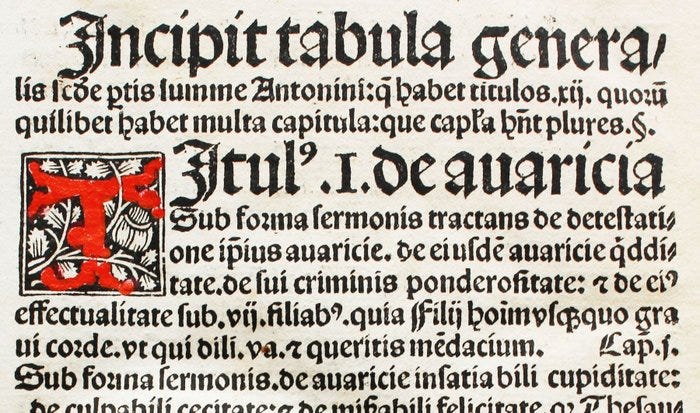 Incipit tabula genera/
lis scd̄e ꝑtis summe Antonini: q̄ habet titulos.xij. quorū
quilibet habet multa capitula: que capl̄a hn̄t plures.§.
TItulꝰ .I. de avaricia
Sub forma sermonis tractans de detestati/
one ip̄ius auaricie. de eiusdē auaricie q̇ddi/
tate. de sui criminis ponderositate: ⁊ de eiꝰ
effectualitate sub.vij.filiabꝰ. quia ¶Filij hoīm vsq̄quo gra
ui corde. vt qui dili. va. ⁊ queritis mēdacium. Cap.j.
Sub forma sermonis. de auaricie insatiabili cupiditate:
de culpabili cecitate: ⁊ de mis̄abili felicitate